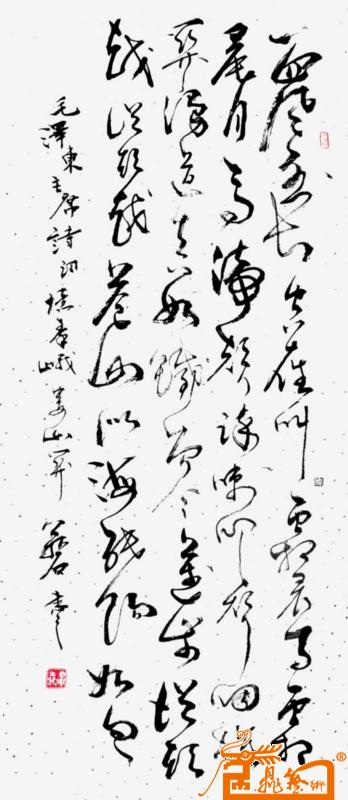 西風烈長空雁叫霜晨月霜
晨月馬蹄聲碎喇叭聲咽雄
關漫道真如鐵而今邁步從頭
越從頭越蒼山似海殘陽如血
毛澤東主席詩詞憶秦娥婁山關 磐書